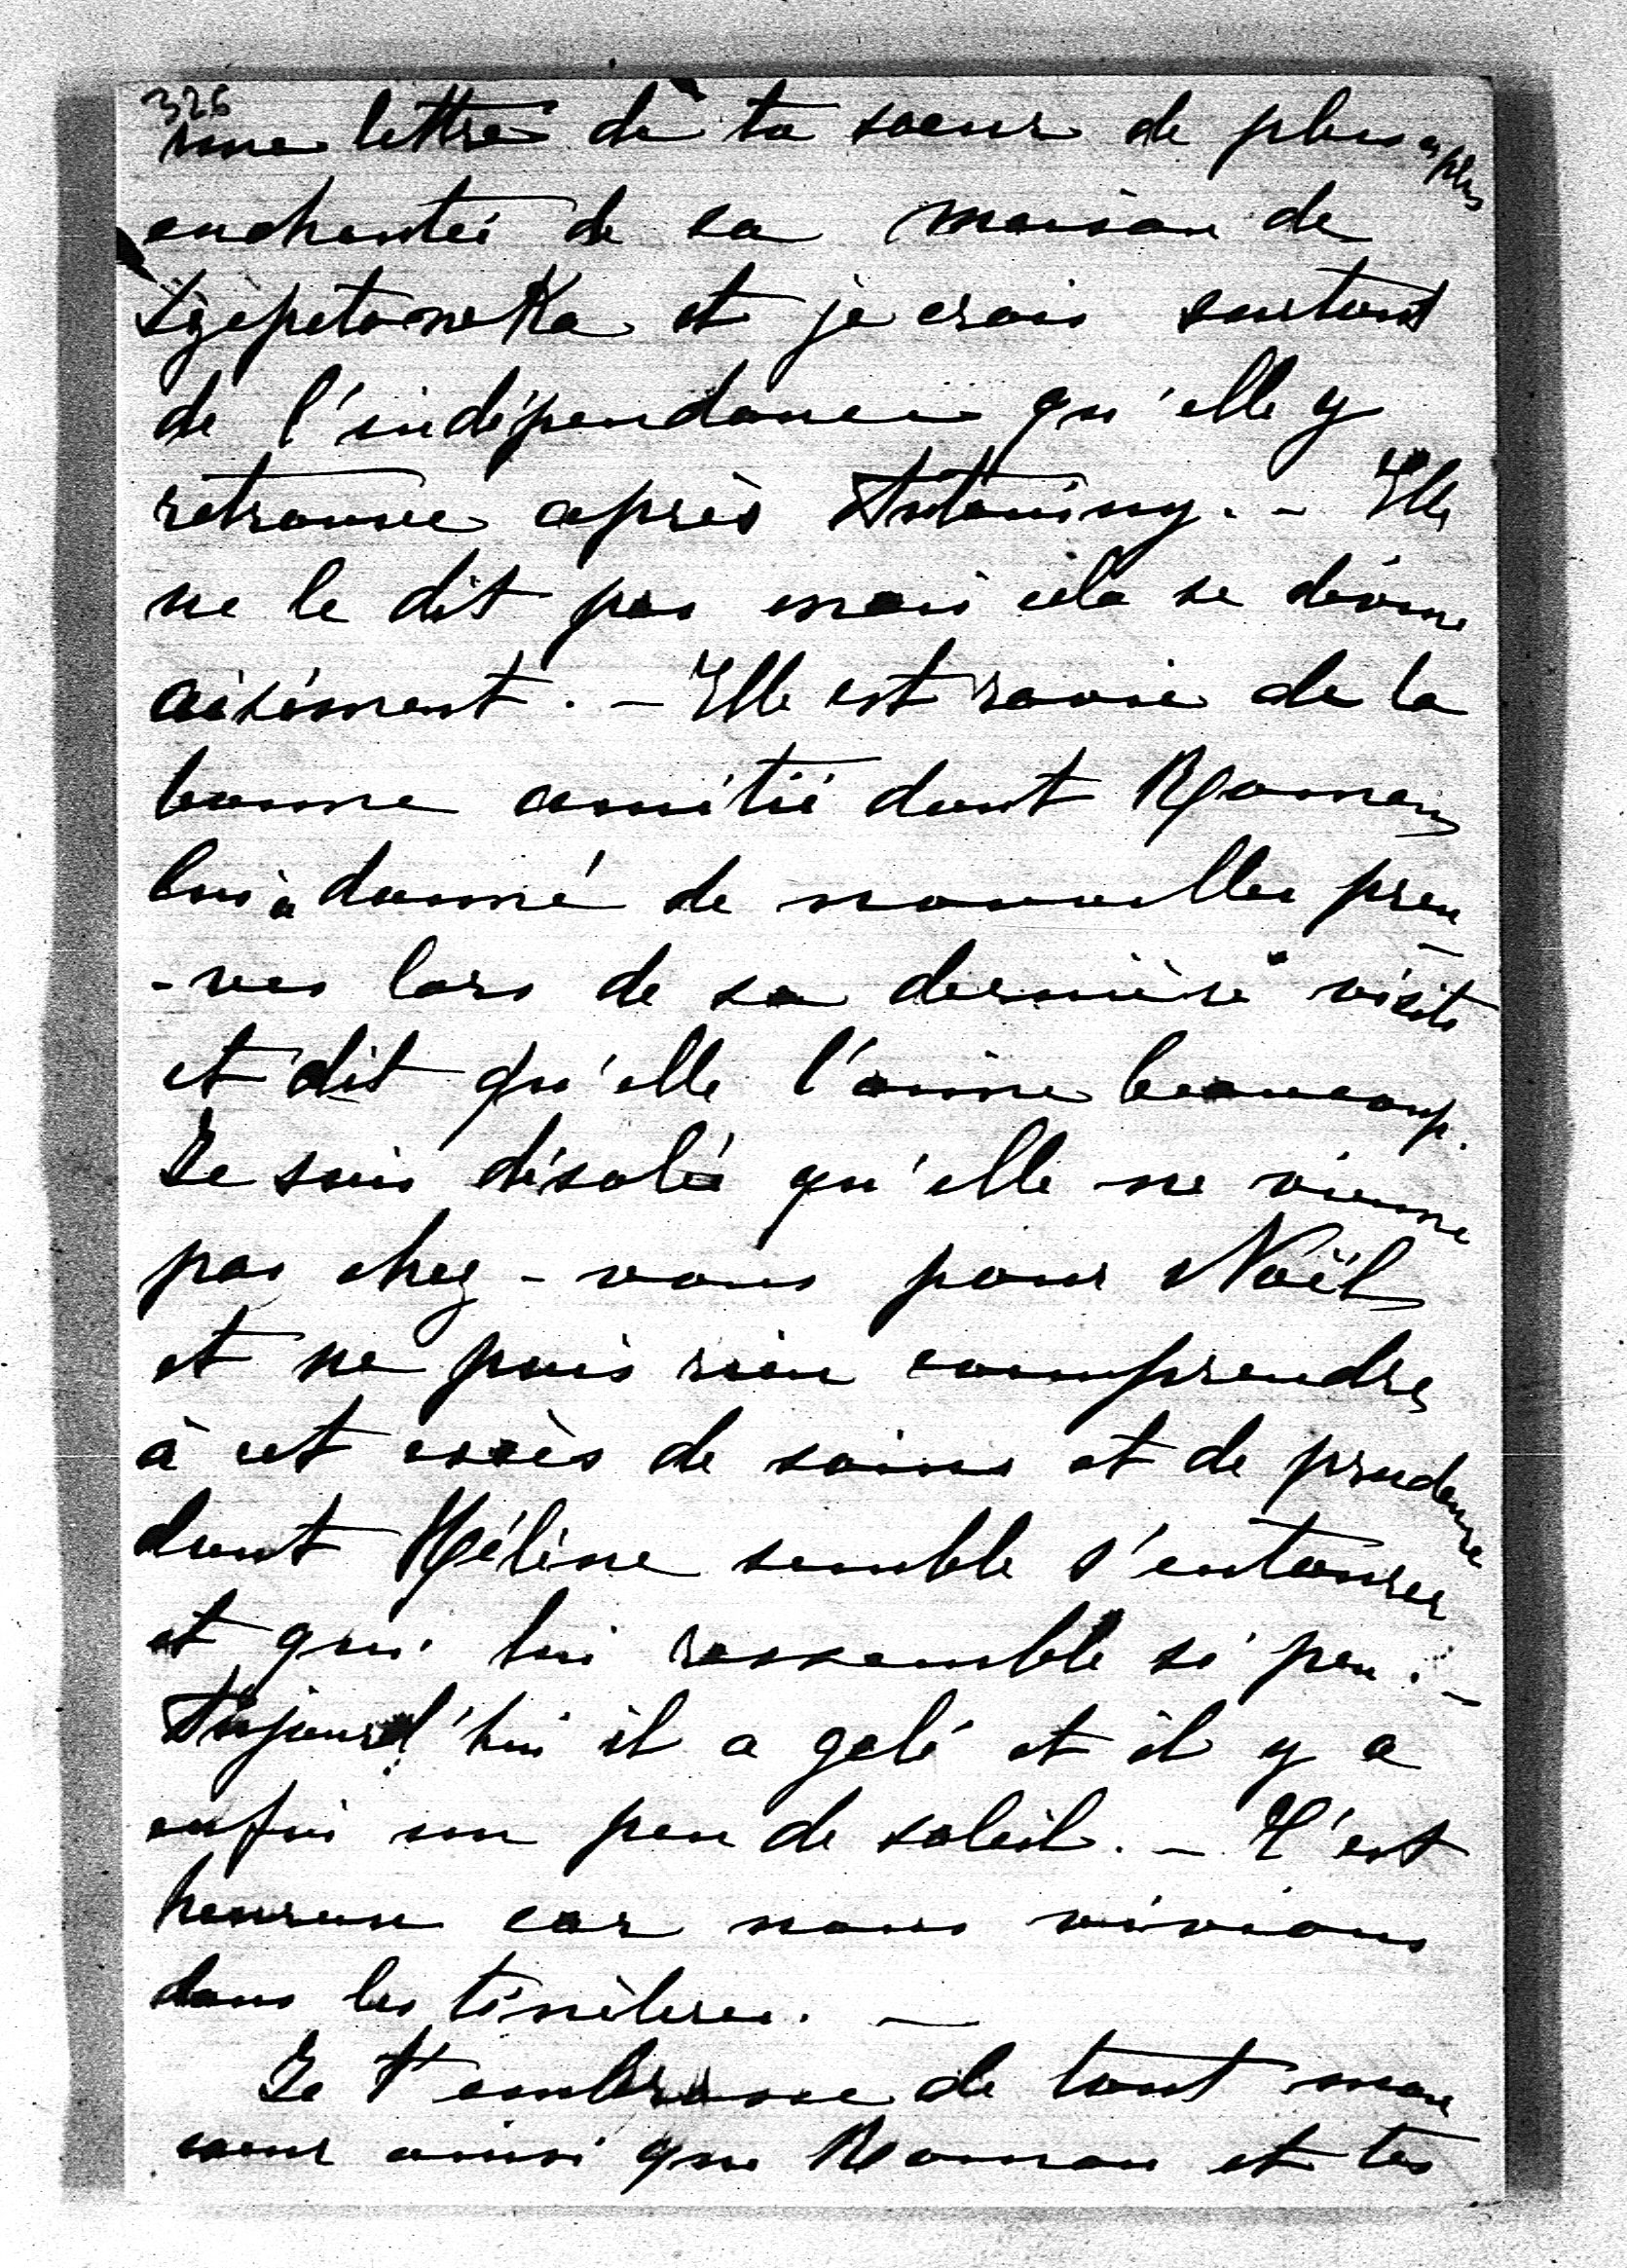 326
une lettre de ta soeur de plus en plus
enchantée de sa maison de
Szepetowka et je crois surtout
de l'indépendance qu'elle y
retrouve après Antoniny. - Elle
ne le dit pas mais cela se devine
aisément. - Elle est ravie de la
bonne amitié dont Roman
lui a donné de nouvelles preu-
-ves lors de sa dernière visite
et dit qu'elle l'aime beaucoup.
Je suis désolée qu'elle ne vienne
pas chez-vous pour Noël
et ne puis rien comprendre
à cet excès de soins et de prudence
dont Hélène semble s'entourer
et qui lui ressemble si peu. -
Aujourd'hui il a gelé et il y a
enfin un peu de soleil. - C'est
heureux car nous vivions
dans les ténèbres. -
Je t'embrasse de tout mon
coeur ainsi que Roman et tes